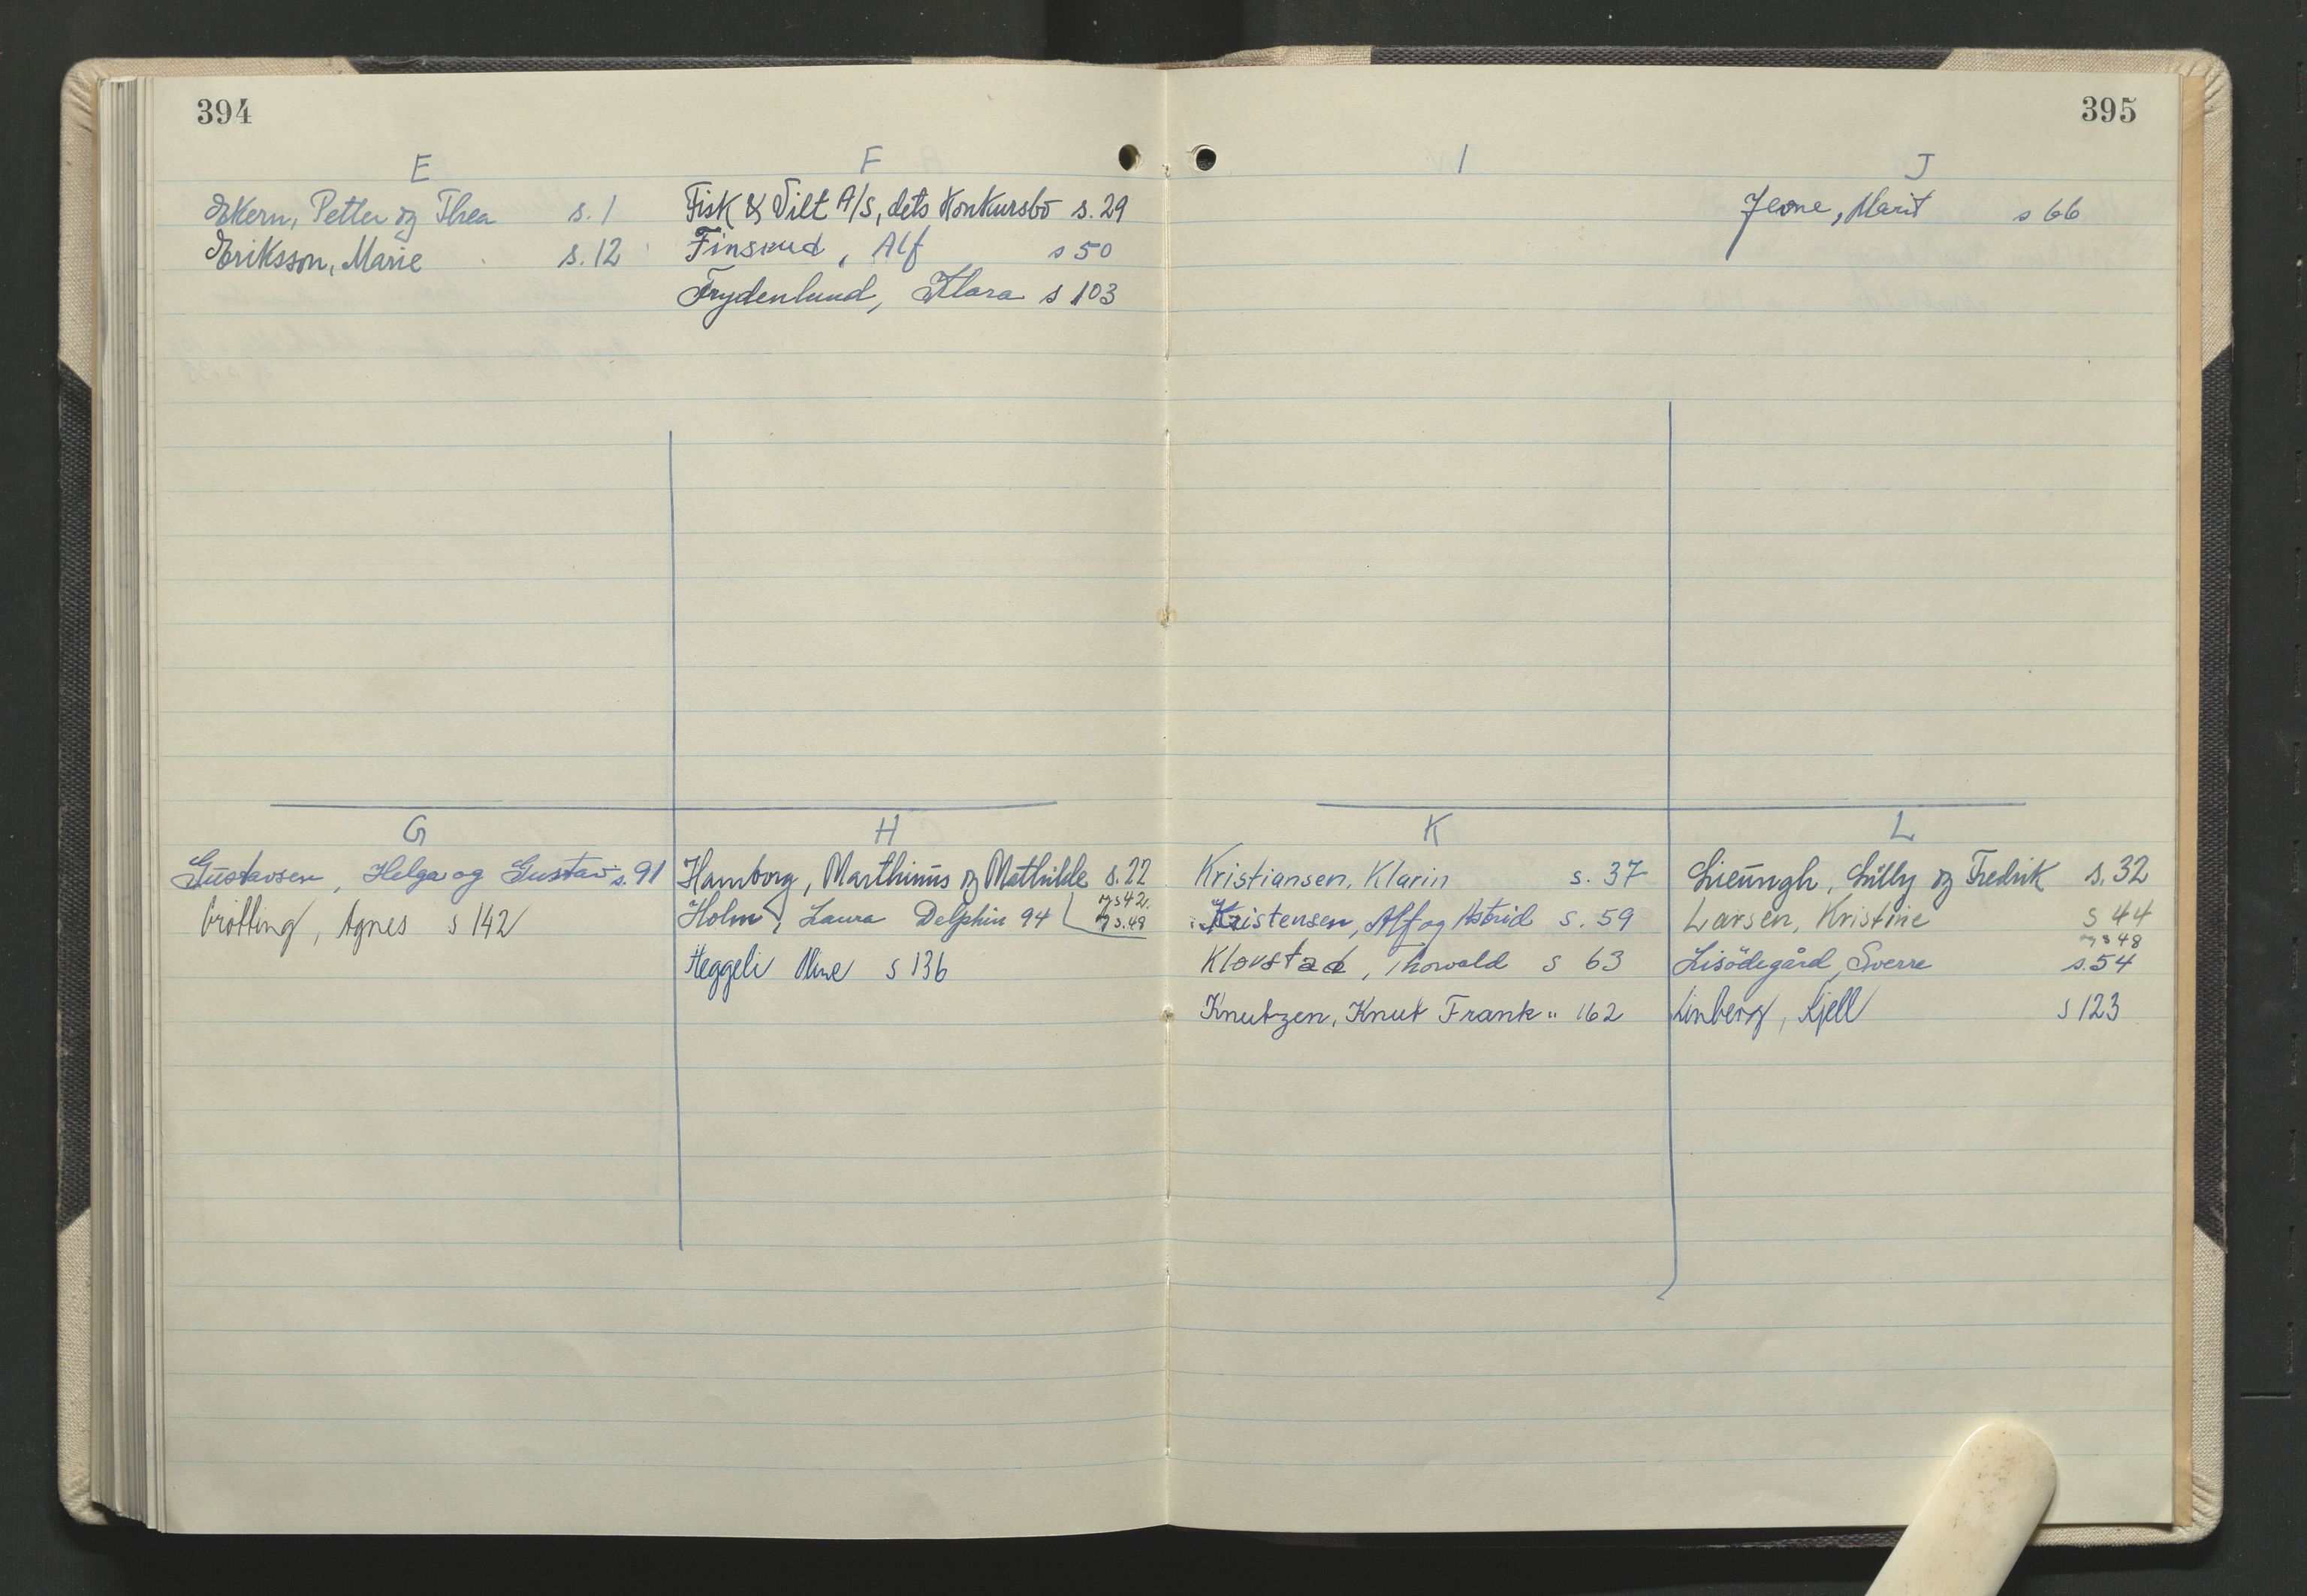 394
E
Ekern, Petter og Thea s. 1
Eriksson, Marie s. 12
F
Fisk & Vilt A/S, dets Konkursbo s. 29
Finsrud, Alf s 50
Frydenlund, Klara s 103
G
Gustavsen, Helga og Gustav s. 91
Grötting, Agnes s 142
H
Hamborg, Marthinus og Mathilde s. 22
og s 42.
Holm, Laura Delphin 94
og s. 49
Heggeli s 136
395
I
J
Marit s 66
K
Kristiansen, Klarin s. 37
Kristensen, Alf og Astrid s. 59
Klovstad, Thorvald s 63
Knutzen, Knut Frank " 162
L
Lieungh, Lilly og Fredrik s. 32
Larsen, Kristine s 44
og s 48
Lisödegård, Sverre s. 54
Linberg, Kjell s 123